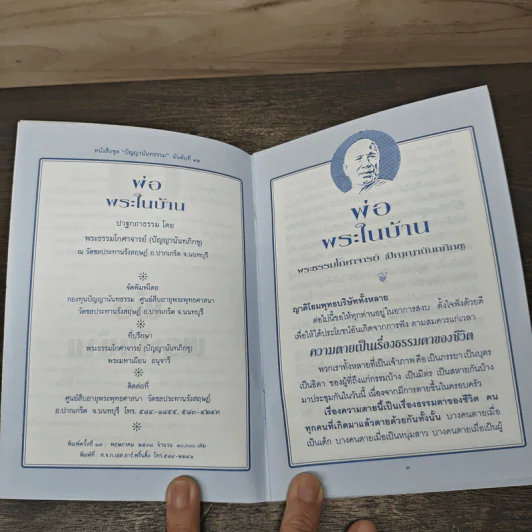 หนังสือชุด "ปัญญานันทธรรม" อันดับที่ ๑๒
พ่อ
พระในบ้าน
ปาฐกถาธรรม โดย
พระธรรมโกศาจารย์ (ปัญญานันทภิกขุ)
ณ วัดชลประทานรังสฤษฎ์ อ.ปากเกร็ด จ.นนทบุรี
จัดพิมพ์โดย
กองทุนปัญญานันทธรรม ศูนย์สืบอายุพระพุทธศาสนา
วัดชลประทานรังสฤษฎ์ อ.ปากเกร็ด จ.นนทบุรี
ที่ปรึกษา
พระธรรมโกศาจารย์ (ปัญญานันทภิกขุ)
พระมหาเฉียน อนุจารี
ติดต่อที่
ศูนย์สืบอายุพระพุทธศาสนา วัดชลประทานรังสฤษฎ์
อ.ปากเกร็ด จ.นนทบุรี โทร.
พิมพ์ครั้งที่ : พฤษภาคม จำนวน เล่ม
พิมพ์ที่ :
พ่อ
พระในบ้าน
พระธรรมโกศาจารย์ (ปัญญานันทภิกขุ)
ญาติโยมพุทธบริษัททั้งหลาย
ต่อไปนี้ขอให้ทุกท่านอยู่ในอาการสงบ ตั้งใจฟังด้วยดี
เพื่อให้ได้ประโยชน์อันเกิดจากการฟัง ตามสมควรแก่เวลา
ความตายเป็นเรื่องธรรมดาของชีวิต
พวกเราทั้งหลายที่เป็นเจ้าภาพคือ เป็นภรรยา เป็นบุตร
เป็นธิดา ของผู้ที่ถึงแก่กรรมบ้าง เป็นมิตร เป็นสหายกันบ้าง
มาประชุมกันในวันนี้ เนื่องจากมีการตายขึ้นในครอบครัว
เรื่องความตายนี้เป็นเรื่องธรรมดาของชีวิต คน
ทุกคนที่เกิดมาแล้วตายด้วยกันทั้งนั้น บางคนตายเมื่อ
เป็นเด็ก บางคนตายเมื่อเป็นหนุ่มสาว บางคนตายเมื่อเป็นผู้
๓